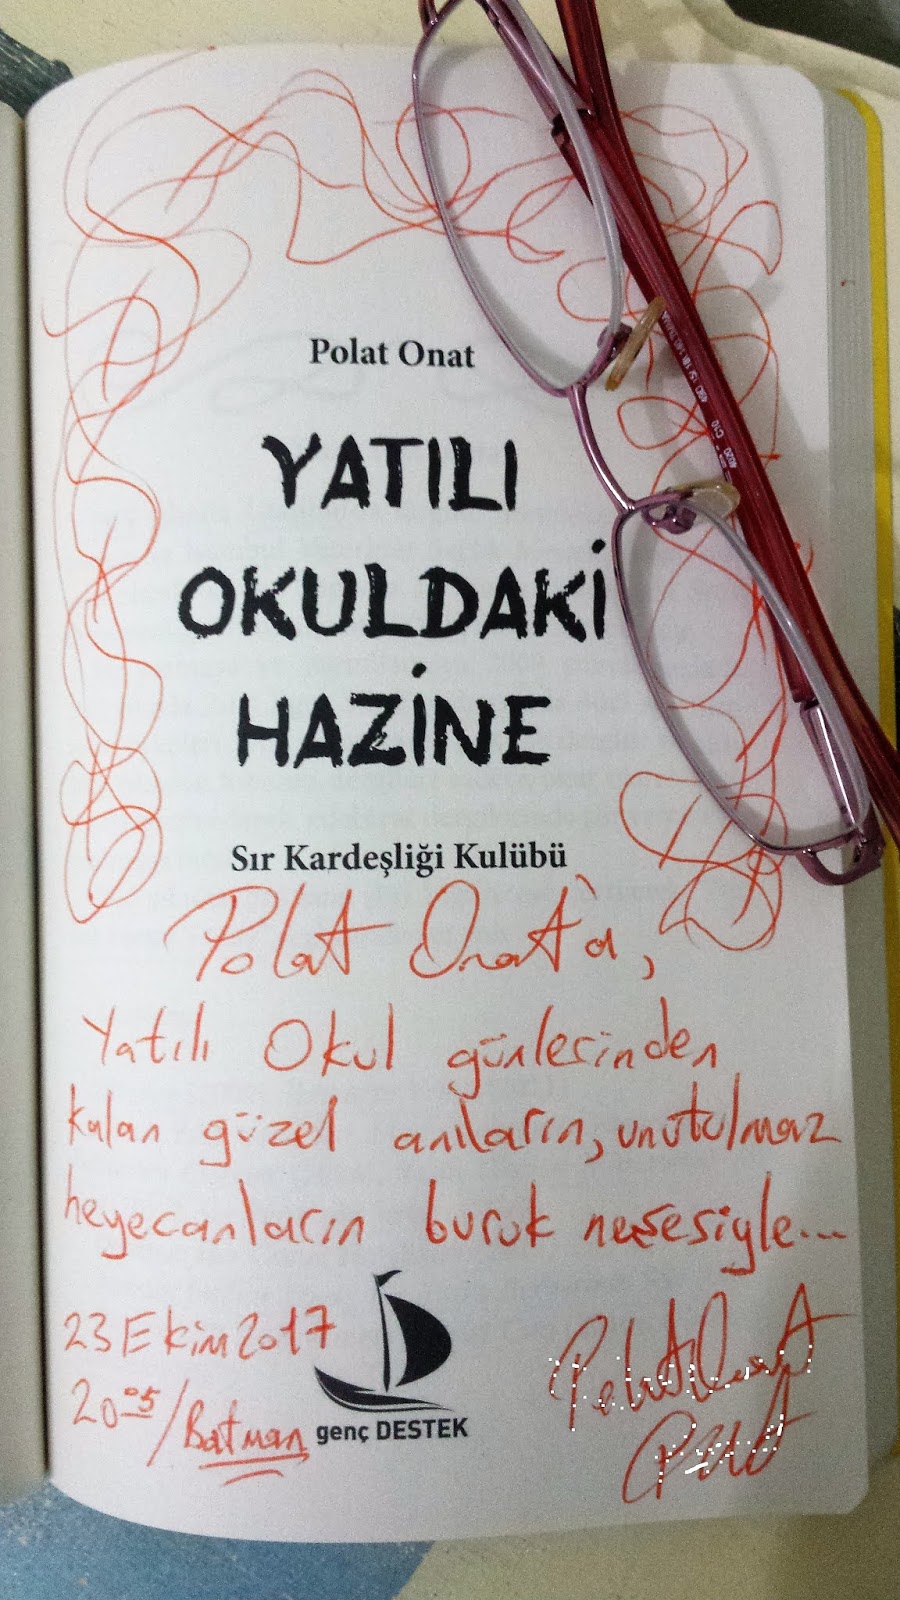 Polat Onat
YATILI
OKULDAKİ
HAZİNE
Sır Kardeşliği Kulübü
Polat Onat'a,
Yatılı Okul günlerinden
kalan güzel anıların, unutulmaz
heyecanların buruk neşesiyle...
23 Ekim 2017
20⁰⁵/Batman
genç DESTEK
Polat Onat